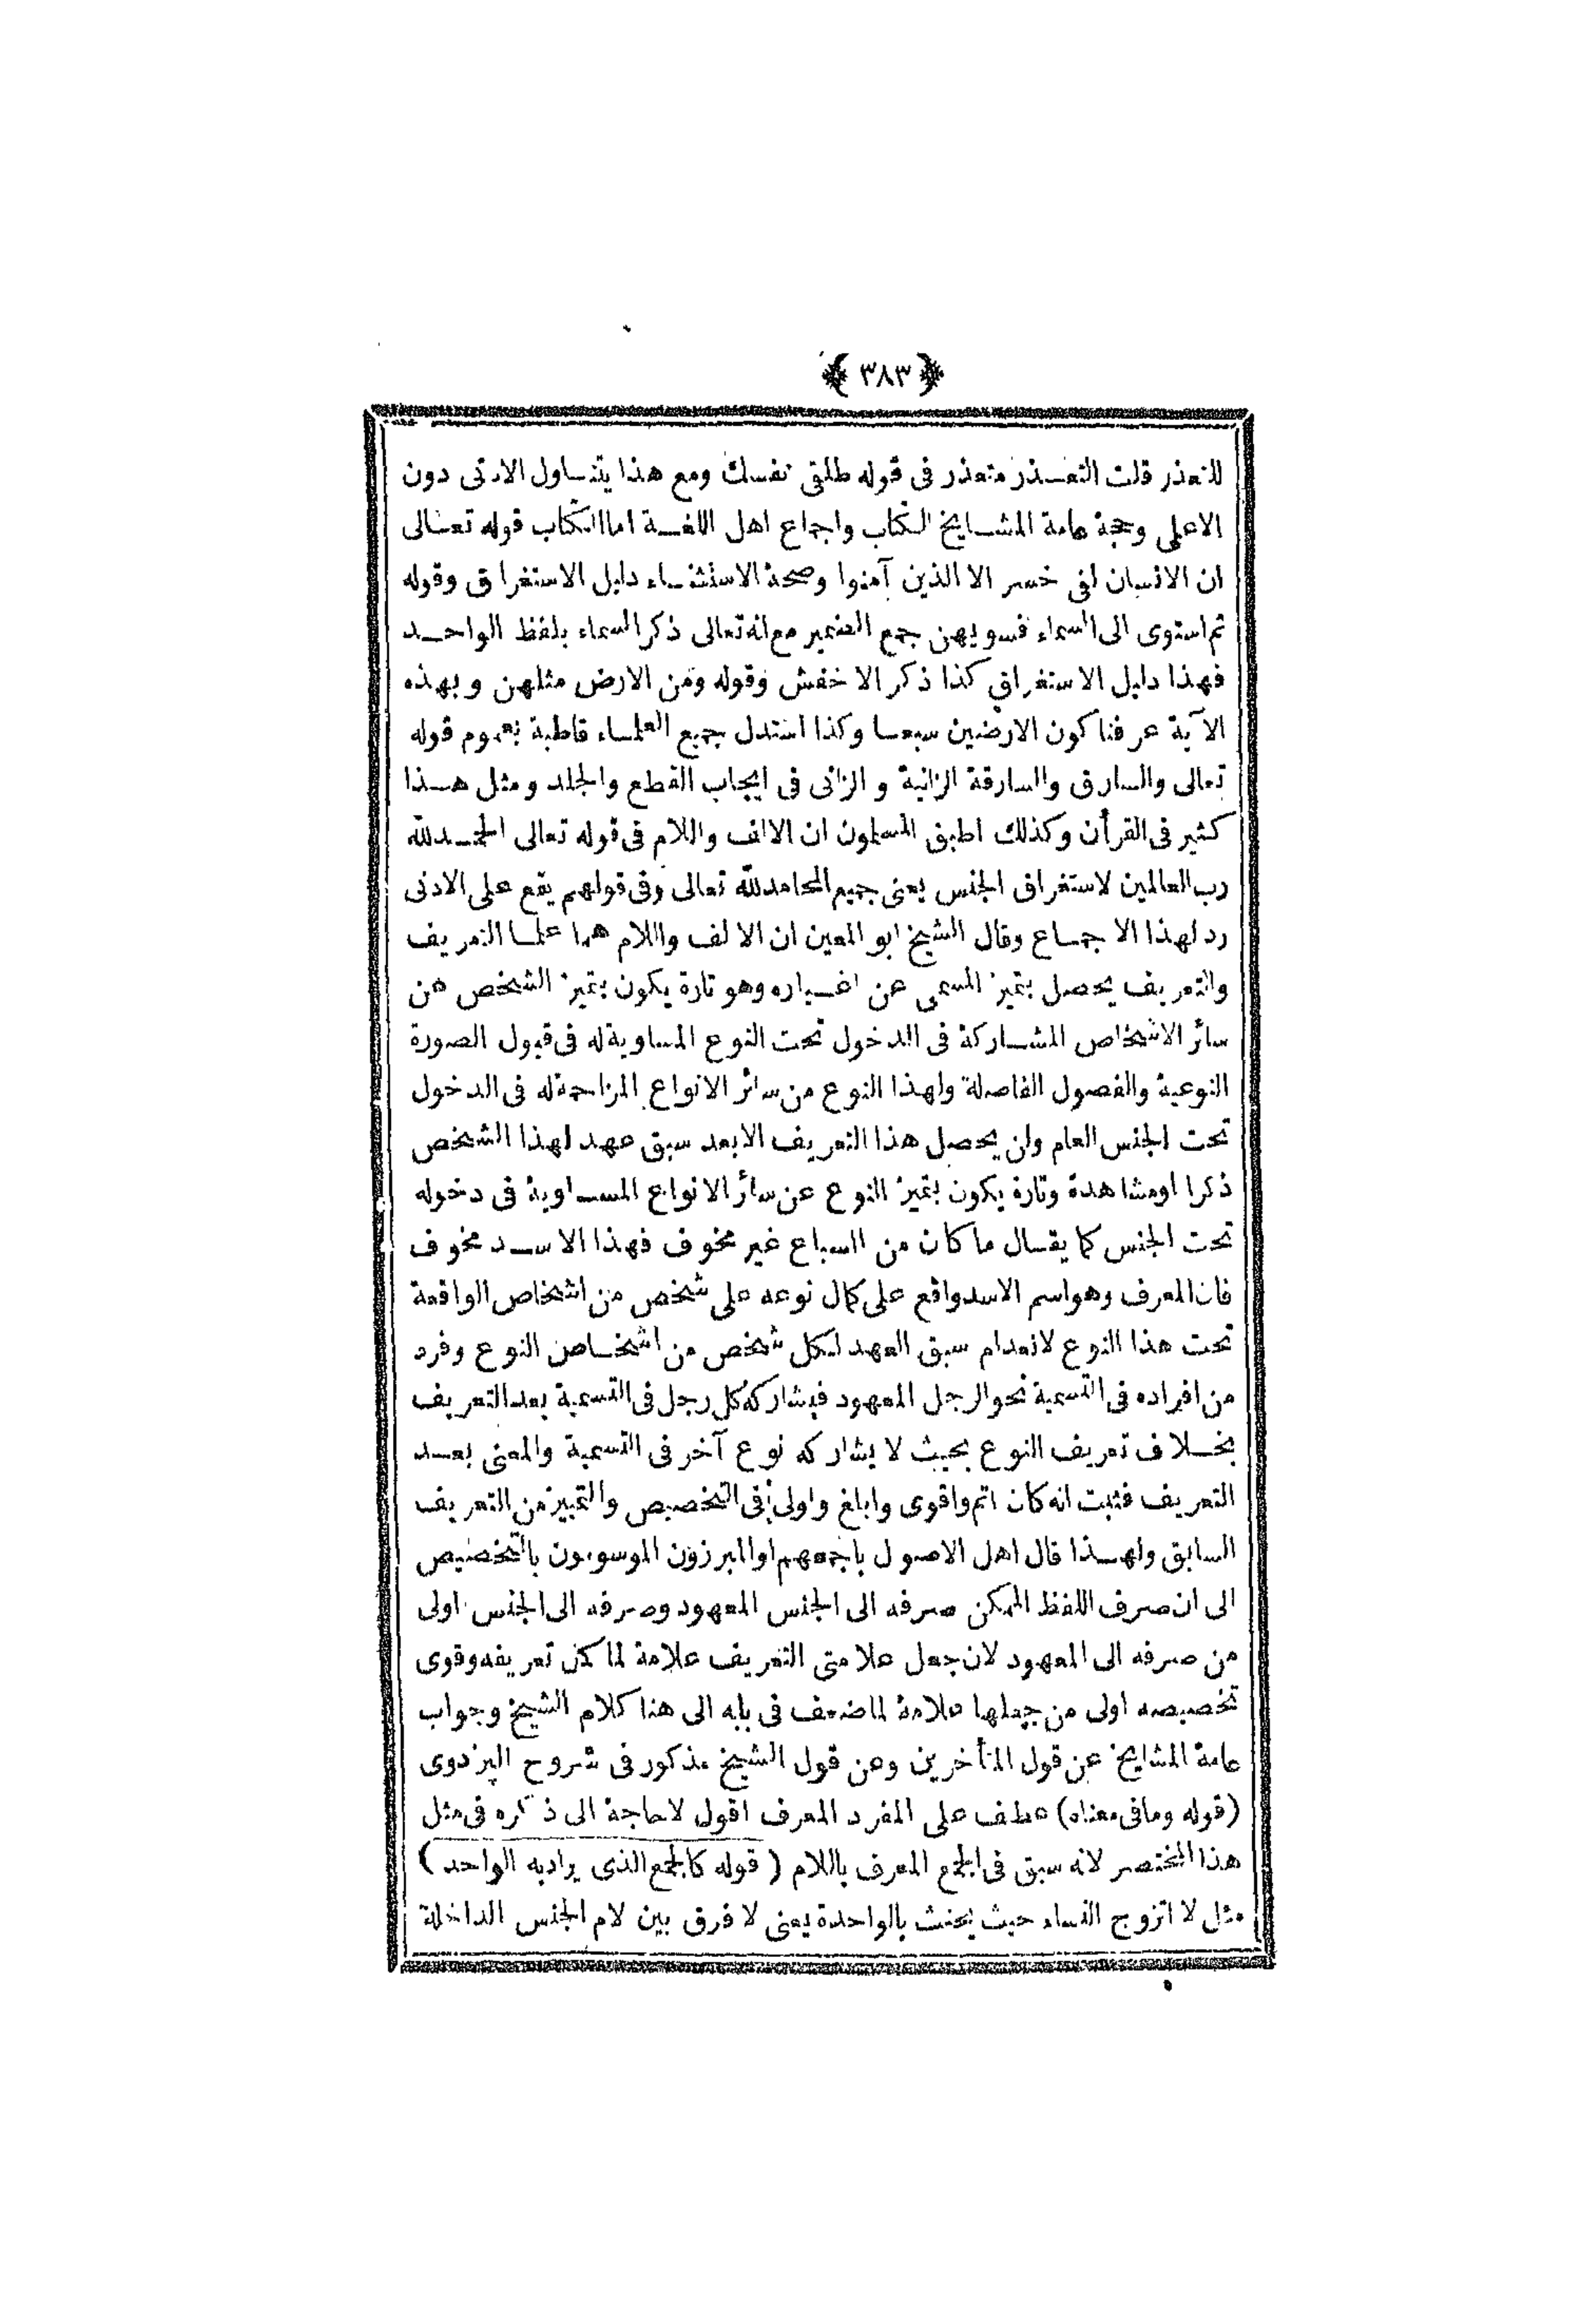 ﴿ ٣٨٣ ﴾
للتعذر قلت التعذر متعذر فى قوله طلقى نفسك ومع هذا يتناول الادنى دون
الاعلى وحجة عامة المشايخ الكتاب واجماع اهل اللغة اما الكتاب قوله تعالى
ان الانسان لفى خسر الا الذين آمنوا وصحة الاستثناء دليل الاستغراق وقوله
ثم استوى الى السماء فسويهن جمع الضمير مع انه تعالى ذكر السماء بلفظ الواحد
فهذا دليل الاستغراق كذا ذكر الاخفش وقوله ومن الارض مثلهن وبهذه
الآية عرفنا كون الارضين سبعا وكذا استدل جميع العلماء قاطبة بعموم قوله
تعالى والسارق والسارقة الزانية والزانى فى ايجاب القطع والجلد ومثل هذا
كثير فى القرأن وكذلك اطبق المسلمون ان الالف واللام فى قوله تعالى الحمد لله
رب العالمين لاستغراق الجنس يعنى جميع المحامد لله تعالى وفى قولهم يقع على الادنى
رد لهذا الاجماع وقال الشيخ ابو المعين ان الالف واللام هما علما التعريف
والتعريف يحصل بتميز المسمى عن اغياره وهو تارة يكون بتميز الشخص من
سائر الاشخاص المشاركة فى الدخول تحت النوع المساوية له فى قبول الصورة
النوعية والفصول الفاصلة ولهذا النوع من سائر الانواع المزاحمة له فى الدخول
تحت الجنس العام ولن يحصل هذا التعريف الا بعد سبق عهد لهذا الشخص
ذكرا او مشاهدة وتارة يكون بتميز النوع عن سائر الانواع المساوية فى دخوله
تحت الجنس كما يقال ما كان من السباع غير مخوف فهذا الاسد مخوف
فان المعرف وهو اسم الاسد واقع على كمال نوعه على شخص من اشخاص الواقعة
تحت هذا النوع لانعدام سبق العهد لكل شخص من اشخاص النوع وفرد
من افراده فى التسمية نحو الرجل المعهود فيشاركه كل رجل فى التسمية بعد التعريف
بخلاف تعريف النوع بحيث لا يشاركه نوع آخر فى التسمية والمعنى بعد
التعريف فثبت انه كان اتم واقوى وابلغ واولى فى التخصيص والتمييز من التعريف
السابق ولهذا قال اهل الاصول باجمعهم او المبرزون الموسومون بالتخصيص
الى ان صرف اللفظ الممكن صرفه الى الجنس المعهود وصرفه الى الجنس اولى
من صرفه الى المعهود لان جعل علامتى التعريف علامة لما كمل تعريفه وقوى
تخصيصه اولى من جعلها علامة لما ضعف فى بابه الى هنا كلام الشيخ وجواب
عامة المشايخ عن قول المتأخرين وعن قول الشيخ مذكور فى شروح البزدوى
(قوله وما فى معناه) عطف على المفرد المعرف اقول لا حاجة الى ذكره فى مثل
هذا المختصر لانه سبق فى الجمع المعرف باللام (قوله كالجمع الذى يراد به الواحد)
مثل لا اتزوج النساء حيث يحنث بالواحدة يعنى لا فرق بين لام الجنس الداخلة